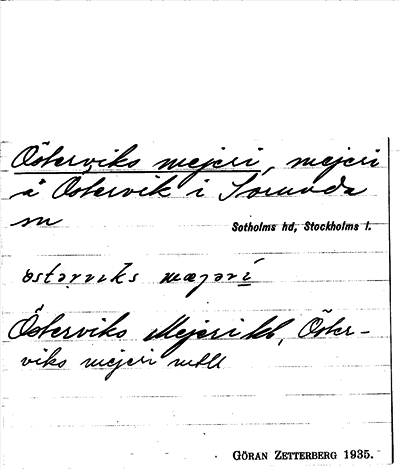 Österviks mejeri, mejeri
å Östervik i Sorunda
sn
Sotholms hd, Stockholms l.
östərviks mæjəri
Österviks Mejeri kb, Öster-
viks mejeri
GÖRAN ZETTERBERG 1935.